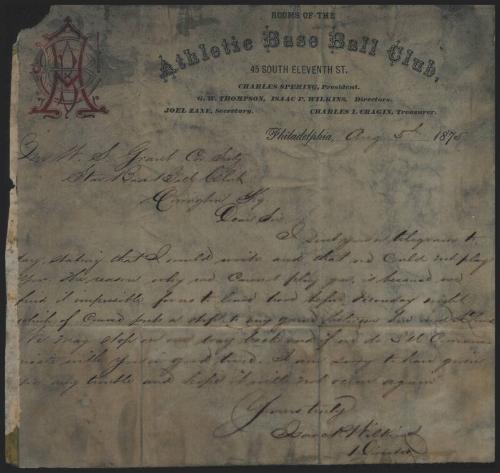 ROOMS OF THE
Athletic Base Ball Club,
45 SOUTH ELEVENTH ST.
CHARLES SPERING, President.
G. W. THOMPSON, ISAAC P. WILKINS, Directors.
JOEL ZANE, Secretary. CHARLES I. CRAGIN, Treasurer.
Philadelphia, Aug 5th 1875
W. S. Grant Co Secty
Star Base Ball Club
Covington Ky
Dear Sir
I sent you a telegram to
day, stating that I would write and that we could not play
you. The reason why we cannot play you, is because we
find it impossible for us to leave here before Monday night
which of course puts a stop to any game between
We may stop on our way back and if we do I'll commu
nicate with you in good time. I am sorry to have given
you any trouble and hope it will not occur again
Yours truly
Isaac P Wilkins
Director